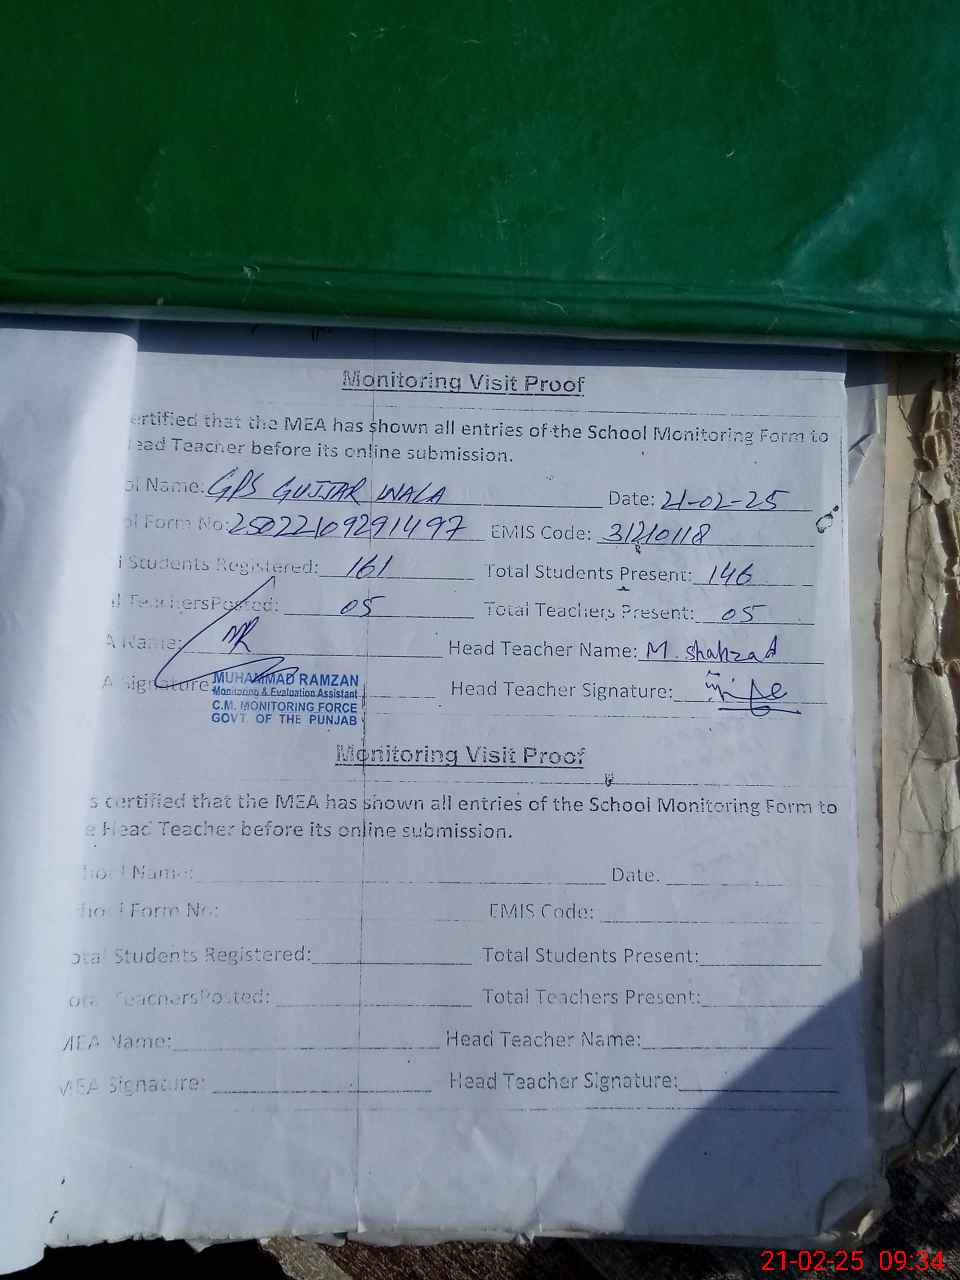 Monitoring Visit Proof
ertified that the MEA has shown all entries of the School Monitoring Form to
ead Teacher before its online submission.
ol Name: GPS GUJJAR WALA Date: 21-02-25
ol Form No: 25022109291497 EMIS Code: 31210118
l Students Registered: 161 Total Students Present: 146
al TeachersPosted: 05 Total Teachers Present: 05
A Name: MR Head Teacher Name: M. Shahzad
A Signature Head Teacher Signature:
MUHAMMAD RAMZAN
Monitoring & Evaluation Assistant
C.M. MONITORING FORCE
GOVT. OF THE PUNJAB
Monitoring Visit Proof
s certified that the MEA has shown all entries of the School Monitoring Form to
e Head Teacher before its online submission.
hool Name: Date.
hool Form No: EMIS Code:
otal Students Registered: Total Students Present:
otal TeachersPosted: Total Teachers Present:
MEA Name: Head Teacher Name:
MEA Signature: Head Teacher Signature:
21-02-25 09:34